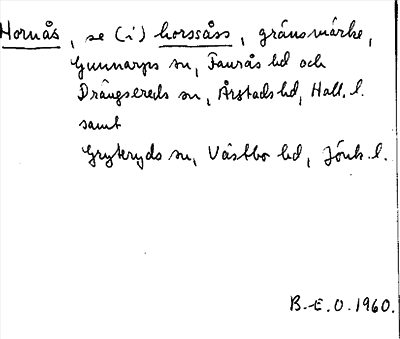 Hornås, se (i) horssåss, gränsmärke,
Gunnarps sn, Faurås hd och
Drängsereds sn, Årstads hd, Hall. l.
samt
Gryteryds sn, Västbo hd, Jönk. l.
B.-E. O. 1960.